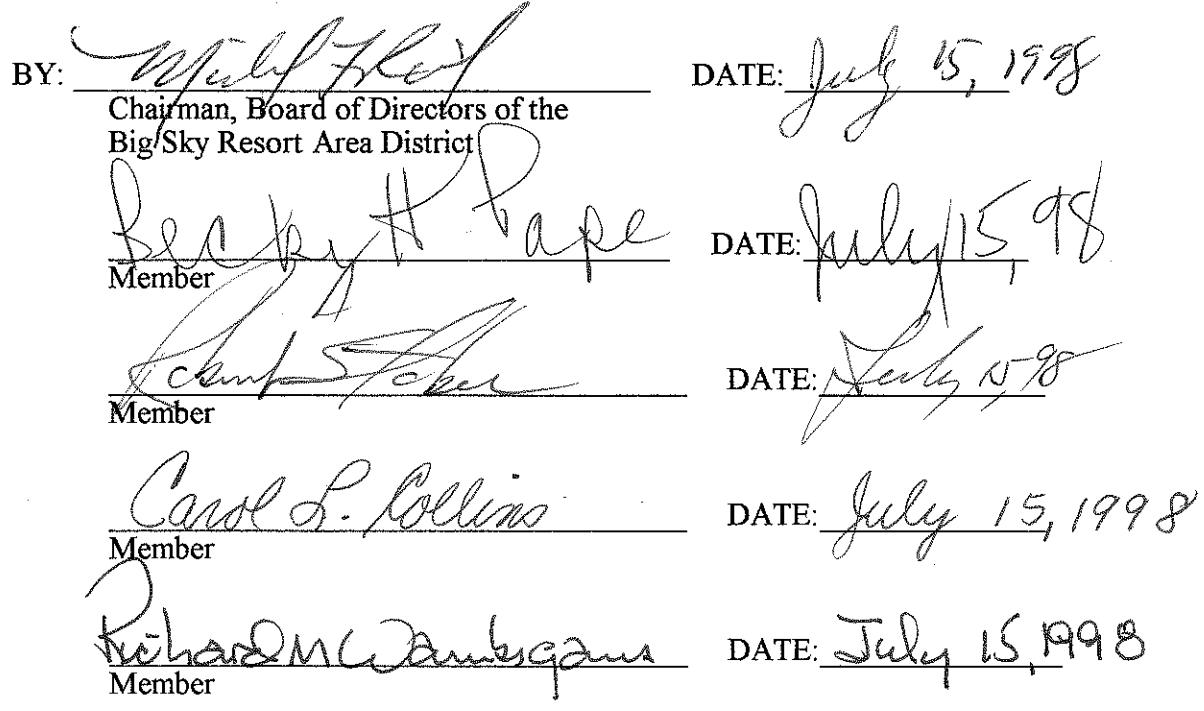 BY: DATE: July 15, 1998
Chairman, Board of Directors of the
Big Sky Resort Area District
Becky H Pape DATE: July 15, 98
Member
DATE: July 15, 98
Member
Carol L. Collins DATE: July 15, 1998
Member
Richard M Wambsgans DATE: July 15, 1998
Member